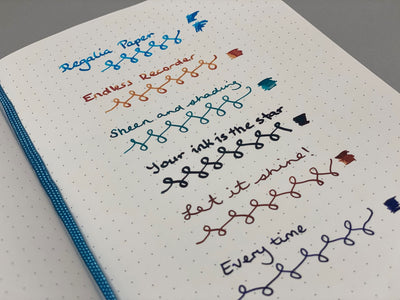 Regalia Paper
Endless Recorder
Sheen and shading
Your ink is the star
Let it shine!
Every time